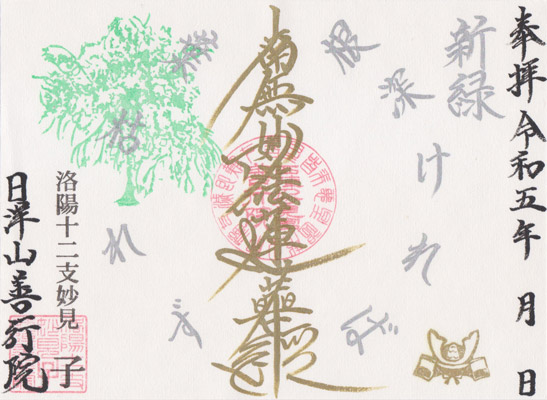 奉拝 令和五年 月 日
新緑
根深ければ
枝
枯れず
南無妙法蓮華経
洛陽十二支妙見 子
日澤山善行院